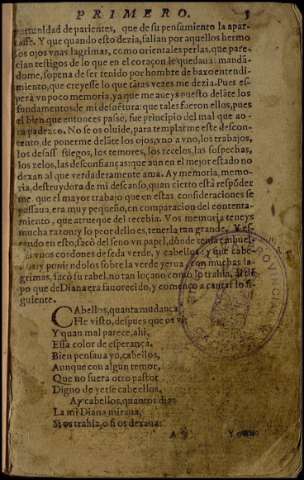 PRIMERO. 5
tunidad de parientes, que de su pensamiento la apar-
tasse. Y que quando esto dezia, salian por aquellos hermo
sos ojos vnas lagrimas, como orientales perlas, que pare-
cian testigos de lo que en el coraçon le quedaua: mandã-
dome, so pena de ser tenido por hombre de baxo entendi-
miento, que creyesse lo que tãtas vezes me dezia. Pues es-
pera vn poco memoria, ya que me aueys puesto delãte los
fundamentos de mi desuẽtura: que tales fueron ellos, pues
el bien que entonces passè, fue principio del mal que ao-
ra padezco. No se os oluide, para templarme este descon-
tento, de ponerme delãte los ojos, vno a vno, los trabajos,
los desassosiegos, los temores, los recelos, las sospechas,
los zelos, las desconfianças: que aun en el mejor estado no
dexan al que verdaderamente ama. Ay memoria, memo-
ria, destruydora de mi descanso, quan cierto està respõder
me que el mayor trabajo que en estas consideraciones se
passaua, era muy pequeño, en comparacion del contenta-
miento, que a trueque del recebia. Vos memoria teneys
mucha razon, y lo peor dello es, tenerla tan grande. Y es-
tando en esto, sacò del seno vn papel, dõde tenia embuel-
tos vnos cordones de seda verde, y cabellos: y que cabe-
llos, y poniẽdolos sobre la verde yerua, con muchas la-
grimas, sacò su rabel, no tan loçano como lo trahia, al tiẽ-
po que de Diana era fauorecido, y començo a cantar lo si-
guiente.
CAbellos, quanta mudança
He visto, despues que os vi
Y quan mal parece, ahi,
Essa color de esperança.
Bien pensaua yo, cabellos,
Aunque con algun temor,
Que no fuera otro pastor
Digno de verse cabe ellos.
Ay cabellos, quantos dias
La mi Diana miraua,
Si os trahia, o si os dexaua:
A 5